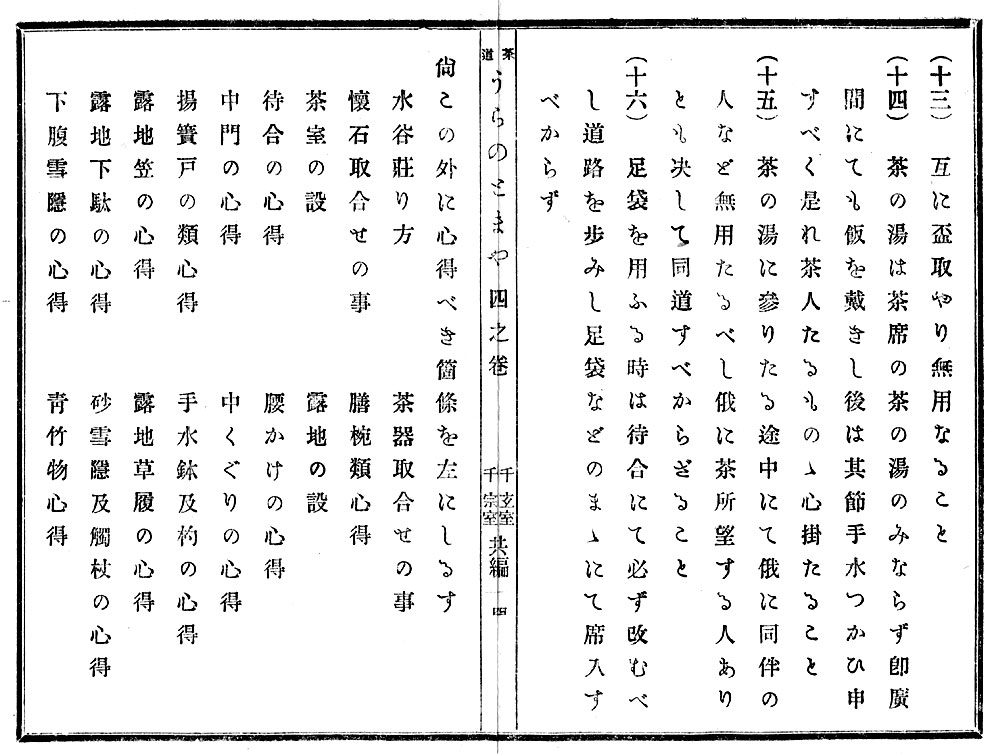 (十三)　互に盃取やり無用なること
(十四)　茶の湯は茶席の茶の湯のみならず卽廣
間にても飯を戴きし後は其節手水つかひ申
すべく是れ茶人たるものゝ心掛たること
(十五)　茶の湯に參りたる途中にて俄に同伴の
人など無用たるべし俄に茶所望する人あり
とも决して同道すべからざること
(十六)　足袋を用ふる時は待合にて必ず改むべ
し道路を歩みし足袋などのまゝにて席入す
べからず
茶道 うらのとまや 四之卷 千玄室 千宗室 共編 四
尙この外に心得べき箇條を左にしるす
水谷莊り方　茶器取合せの事
懷石取合せの事　膳椀類心得
茶室の設　露地の設
待合の心得　腰かけの心得
中門の心得　中くぐりの心得
揚簀戸の類心得　手水鉢及杓の心得
露地笠の心得　露地草履の心得
露地下駄の心得　砂雪隱及觸杖の心得
下腹雪隱の心得　靑竹物心得